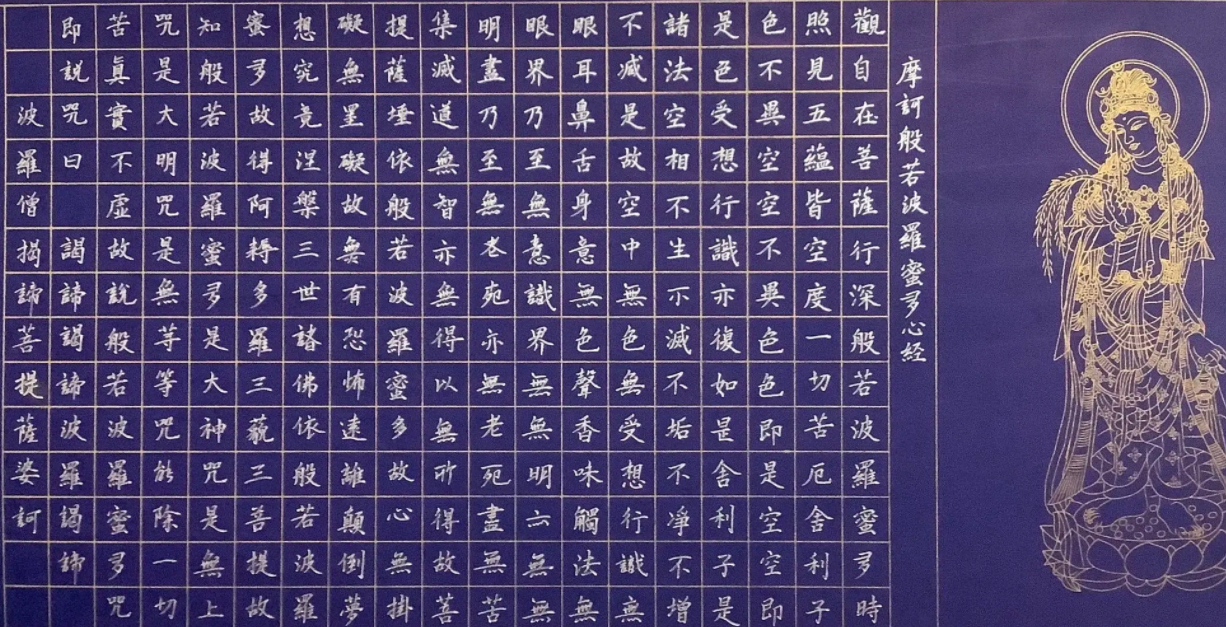 摩訶般若波羅蜜多心経
觀自在菩薩行深般若波羅蜜多時
照見五蘊皆空度一切苦厄舍利子
色不異空空不異色色即是空空即
是色受想行識亦復如是舍利子是
諸法空相不生不滅不垢不淨不增
不减是故空中無色無受想行識無
眼耳鼻舌身意無色聲香味觸法無
眼界乃至無意識界無無明亦無無
明盡乃至無老死亦無老死盡無苦
集滅道無智亦無得以無所得故菩
提薩埵依般若波羅蜜多故心無掛
礙無罣礙故無有恐怖遠離顛倒夢
想究竟涅槃三世諸佛依般若波羅
蜜多故得阿耨多羅三藐三菩提故
知般若波羅蜜多是大神咒是無上
咒是大明咒是無等等咒能除一切
苦眞實不虛故說般若波羅蜜多咒
即説咒曰 謁諦謁諦波羅謁諦
波羅僧揭諦菩提薩婆訶